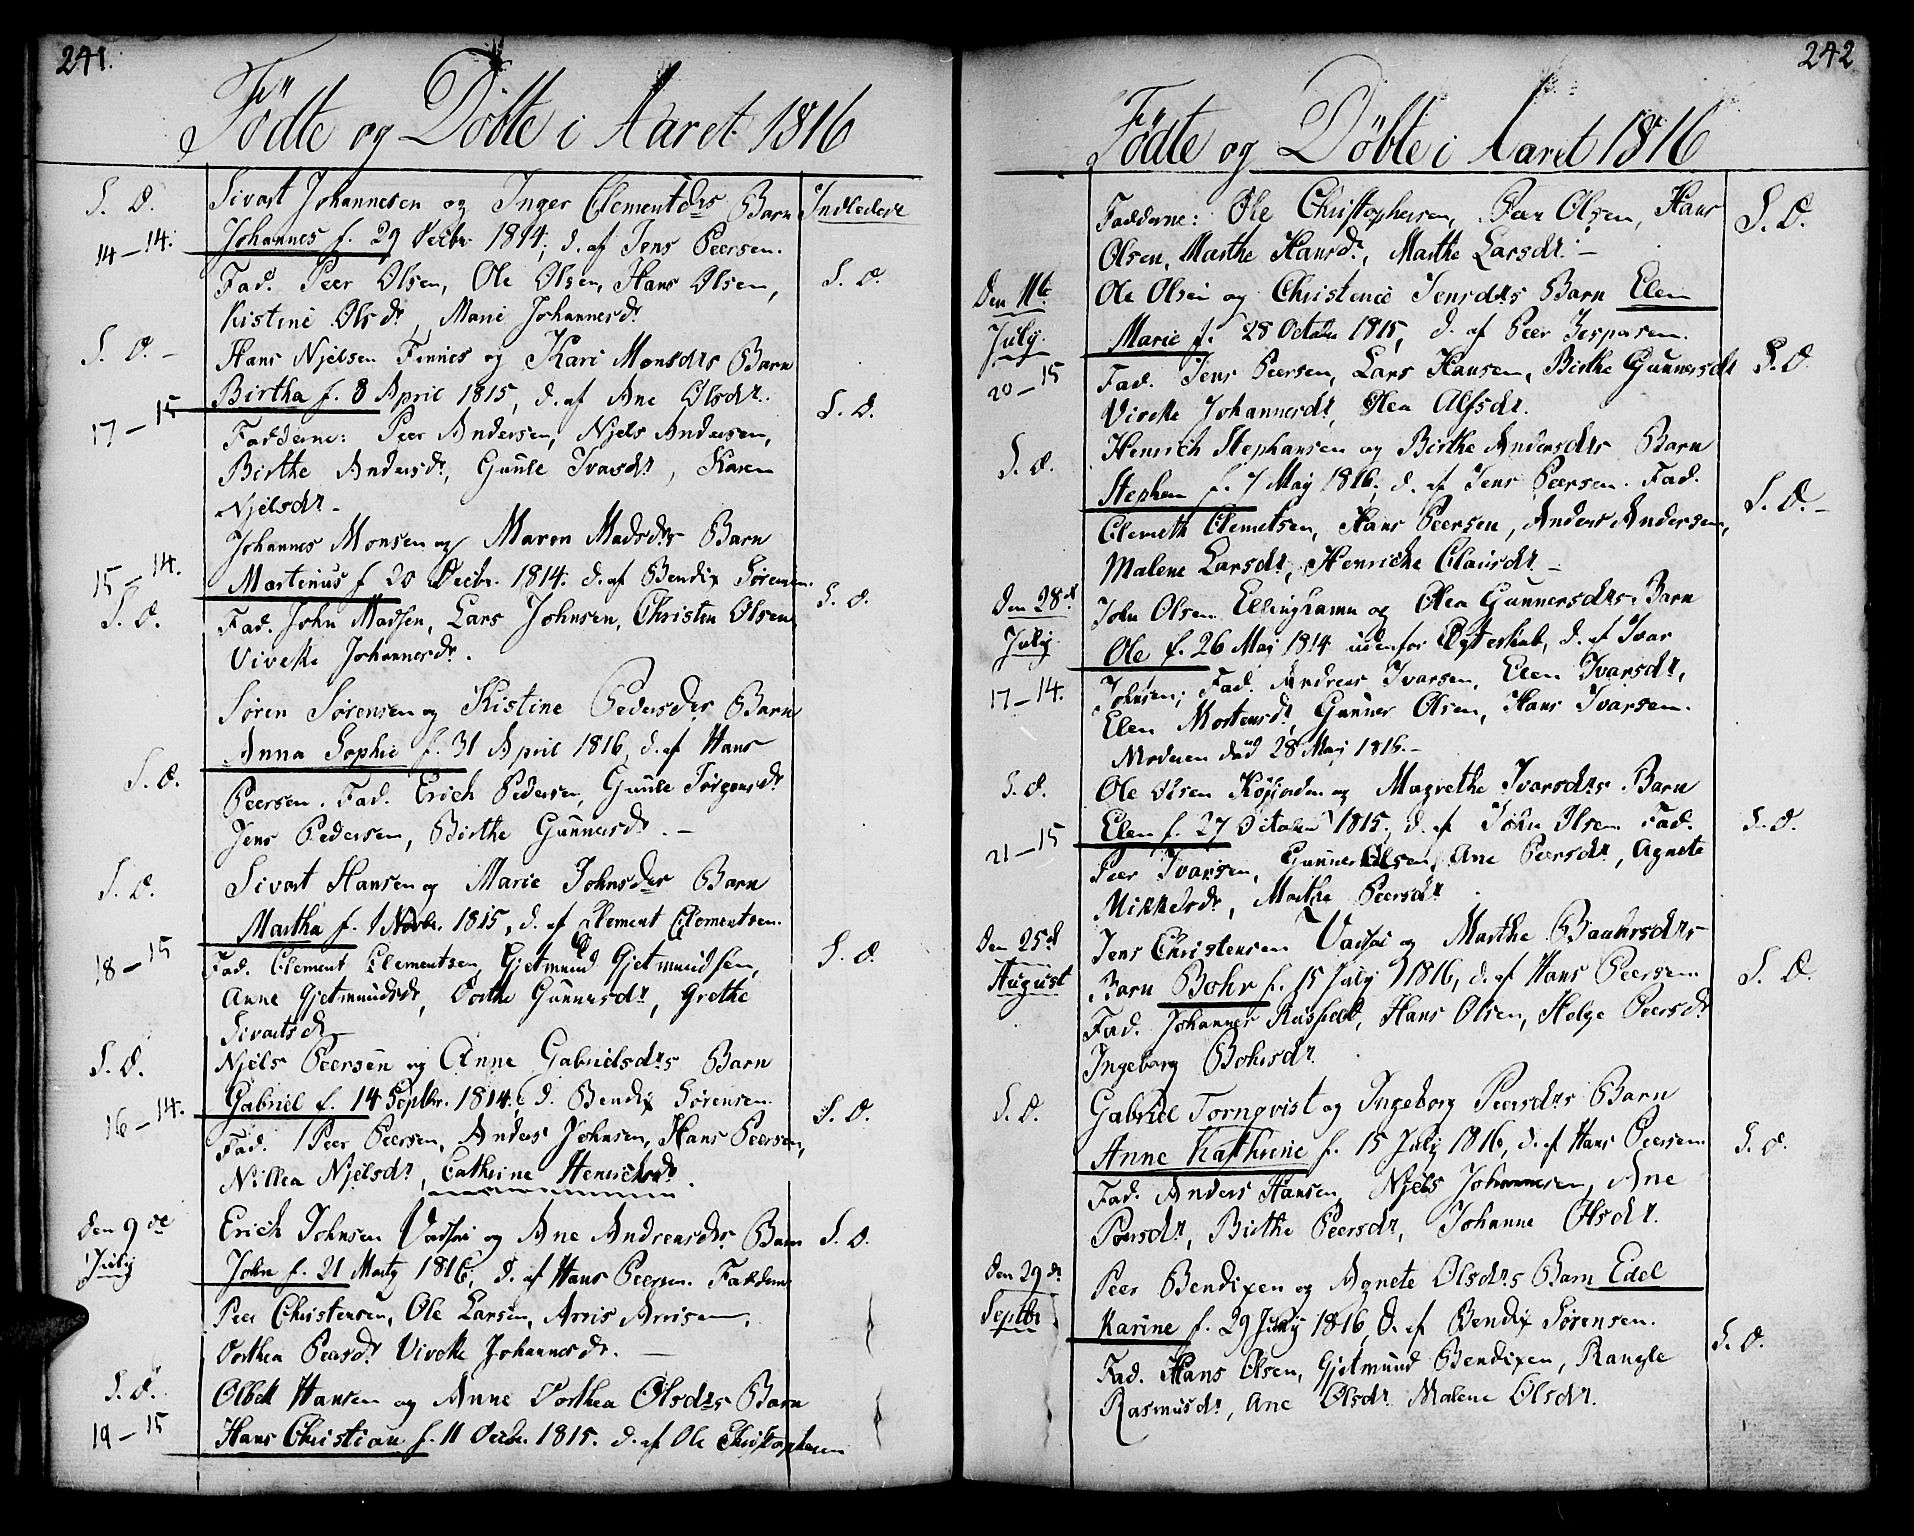 241.
Födte og Döbte i Aaret 1816
S. D. Sivart Johannesen og Inger Clementsdrs Barn Indledede
14-14. Johannes f. 29 Decbr 1814, d. af Jens Peersen.
Fad. Peer Olsen, Ole Olsen, Hans Olsen, S. D.
Kistine Olsdr, Mari Johannesdr
S. D. - Hans Njelsen Finnes og Kari Monsdrs Barn
Birtha f. 8 April 1815, d. af Ane Olsdr. S. D.
17-15 Fadderne: Peer Andersen, Njels Andersen,
Birthe Andersdr, Gunle Ivarsdr, Karen
Njelsdr -
Johannes Monsen og Maren Madsdrs Barn
15-14. Martinus f 20 Decbr. 1814. d. af Bendix Sörensen. S. D.
S. D. Fad. John Madsen, Lars Johnsen, Christen Olsen
Viveke Johannesdr.
Sören Sörensen og Kistine Pedersdrs Barn
Anna Sophie f. 31 April 1816, d. af Hans
S. D. Peersen. Fad. Erich Pedersen, Gunle Jörgensdr
Jens Pedersen, Birthe Gunnersdr. -
S. D. Sivart Hansen og Marie Johnsdrs Barn
Martha f. 1 Novbr. 1815, d. af Clement Clementsen.
18-15 Fad. Clement Clementsen, Gjetmund Gjetmundsen, S. D.
Anne Gjetmundsdr, Dorthe Gunnersdr, Grethe
Sivartsdr
S. D. Njels Peersen og Anne Gabrielsdrs Barn
Gabriel f. 14 Septbr. 1814, d. Bendix Sörensen
16-14. Fad. Peer Peersen, Anders Johnsen, Hans Peersen, S. D.
Nillea Njelsdr, Cathrine Henrichsdr.
Den 9de Erich Johnsen og Ane Andreasdrs Barn S. D.
July John f. 21 Marty 1816, d. af Hans Peersen. Faddere
Peer Christensen, Ole Larsen, Arris Arrisen,
Dorthea Peersdr Viveke Johannesdr. -
S. D. Olbert Hansen og Anne Dorthea Olsdrs Barn
19-15 Hans Christian f. 11 Decbr. 1815. d. af Ole Christophersen
242
Födte og Döbte i Aaret 1816
Fadderne: Ole Christophersen, Peer Olsen, Hans S. D.
Olsen, Marthe Hansdr, Marthe Larsdr. -
Den 11te Ole Olsen og Christence Jensdrs Barn Elen
July. Marie f. 28 October 1815, d. af Peer Jespersen.
20-15 Fad. Jens Peersen, Lars Hansen, Birthe Gunnersdr S. D.
Viveke Johannesdr, Olea Alfsdr.
S. D. Henrich Stephansen og Birthe Andersdrs Barn
Stephen f. 7 Maj 1816, d. af Jens Peersen. Fad. S. D. -
Clemeth Clemetsen, Hans Peersen, Anders Andersen,
Malene Larsdr, Henriche Clausdr -
Den 28d John Olsen Ellinghamn og Olea Gunnersdrs Barn
July Ole f. 26 Maj 1814 udenfor Egteskab, d. af Ivar
17-14. Johnsen; Fad. Andreas Ivarsen, Elen Ivarsdr,
Elen Mortensdr, Gunner Olsen, Hans Ivarsen.
Moderen död 28 Maj 1816. -
S. D. Ole Olsen og Magrethe Ivarsdrs Barn
Elen f. 27 October 1815. d. af John Olsen Fad. S. D.
21-15 Peer Ivarsen, Gunner Olsen, Ane Peersdr, Agnete
Mikkelsdr, Marthe Peersdr
Den 25d Jens Christensen og Marthe Baahrsdrs
August Barn Bohr f. 15 July 1816, d. af Hans Peersen S. D.
Fad. Johannes Hans Olsen, Helge Peersdr
Ingeborg Bohrsdr.
S. D. Gabriel Tornqvist og Ingeborg Peersdrs Barn
Anne Kathrine f. 15 July 1816, d. af Hans Peersen S. D.
Fad. Anders Hansen, Njels Johannesen, Ane
Ponsdr, Birthe Peersdr, Johanne Olsdr.
Den 29de Peer Bendixen og Agnete Olsdrs Barn Edel
Septbr Karine f. 29 July 1816, d. af Bendix Sörensen. S. D.
Fad. Hans Olsen, Gjetmund Bendixen, Rangle
Rasmusdr, Ane Olsdr Malene Olsdr.